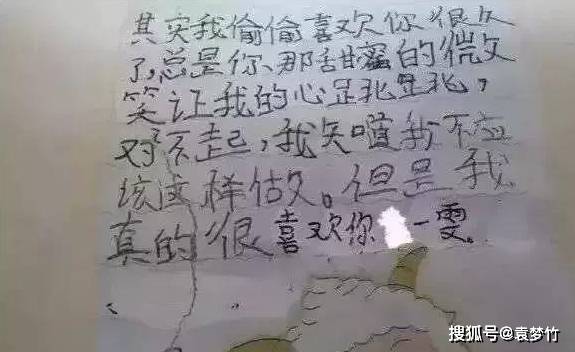 其实我偷偷喜欢你很久
了,总是你、那甜蜜的微文
笑让我的心是兆是兆,
对不起,我矢噵我不应
该这样做。但是我
真的很喜欢你 一雯。
搜狐号@袁梦竹